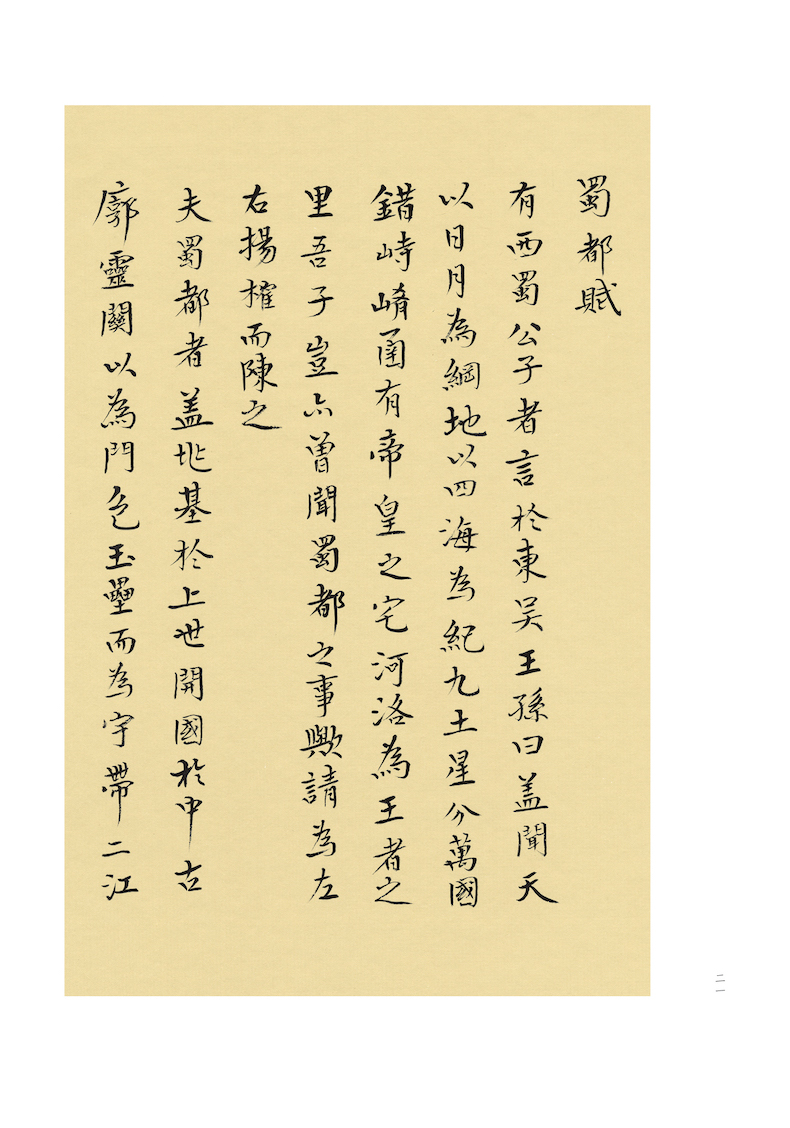 蜀都賦
有西蜀公子者言於東吴王孫曰盖聞天
以日月為綱地以四海為紀九土星分萬國
錯峙崤函有帝皇之宅河洛為王者之
里吾子豈亦曾聞蜀都之事歟請為左
右揚搉而陳之
夫蜀都者盖兆基於上世開國於中古
廓靈關以為門包玉壘而為宇帶二江
二一